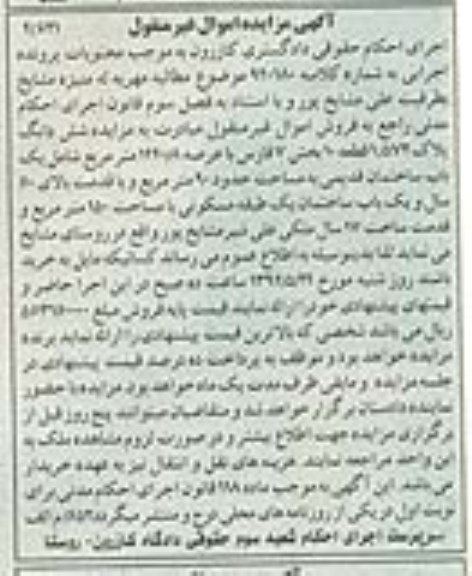 آگهی مزایده اموال غیر منقول
اجرای احکام حقوقی دادگستری کازرون به موجب محتویات پرونده
اجرایی به شماره کلاسه موضوع مطالبه مهریه له منیژه مشایخ
بطرفیت علی مشایخ پور و با استناد به فصل سوم قانون اجرای احکام
مدنی راجع به فروش اموال غیر منقول مبادرت به مزایده شش دانگ
پلاک قطعه بخش ۷ فارس با عرصه متر مربع شامل یک
باب ساختمان قدیمی به مساحت حدود ۹۰ متر مربع و با قدمت بالای ۵۰
سال و یک باب ساختمان یک طبقه مسکونی با مساحت ۱۵۰ متر مربع و
قدمت ساخت سال ملکی علی مشایخ پور واقع در روستای مشایخ
می نماید لذا بدینوسیله به اطلاع عموم می رساند کسانیکه مایل به خرید
باشند روز شنبه مورخ ساعت ده صبح در این اجرا حاضر و
قیمتهای پیشنهادی خود را ارائه نمایند قیمت پایه فروش مبلغ
ریال می باشد شخصی که بالاترین قیمت پیشنهادی را ارائه نماید برنده
مزایده خواهد بود و موظف به پرداخت ده درصد قیمت پیشنهادی در
جلسه مزایده و مابقی ظرف مدت یک ماه خواهد بود. مزایده با حضور
نماینده دادستان برگزار خواهد شد و متقاضیان میتوانند پنج روز قبل از
برگزاری مزایده جهت اطلاع بیشتر و در صورت لزوم مشاهده ملک به
این واحد مراجعه نمایند. هزینه های نقل و انتقال نیز به عهده خریدار
می باشد. این آگهی به موجب ماده ۱۱۸ قانون اجرای احکام مدنی برای
نوبت اول در یکی از روزنامه های محلی درج و منتشر میگردد م الف
سرپرست اجرای احکام شعبه سوم حقوقی دادگاه کازرون - روستا